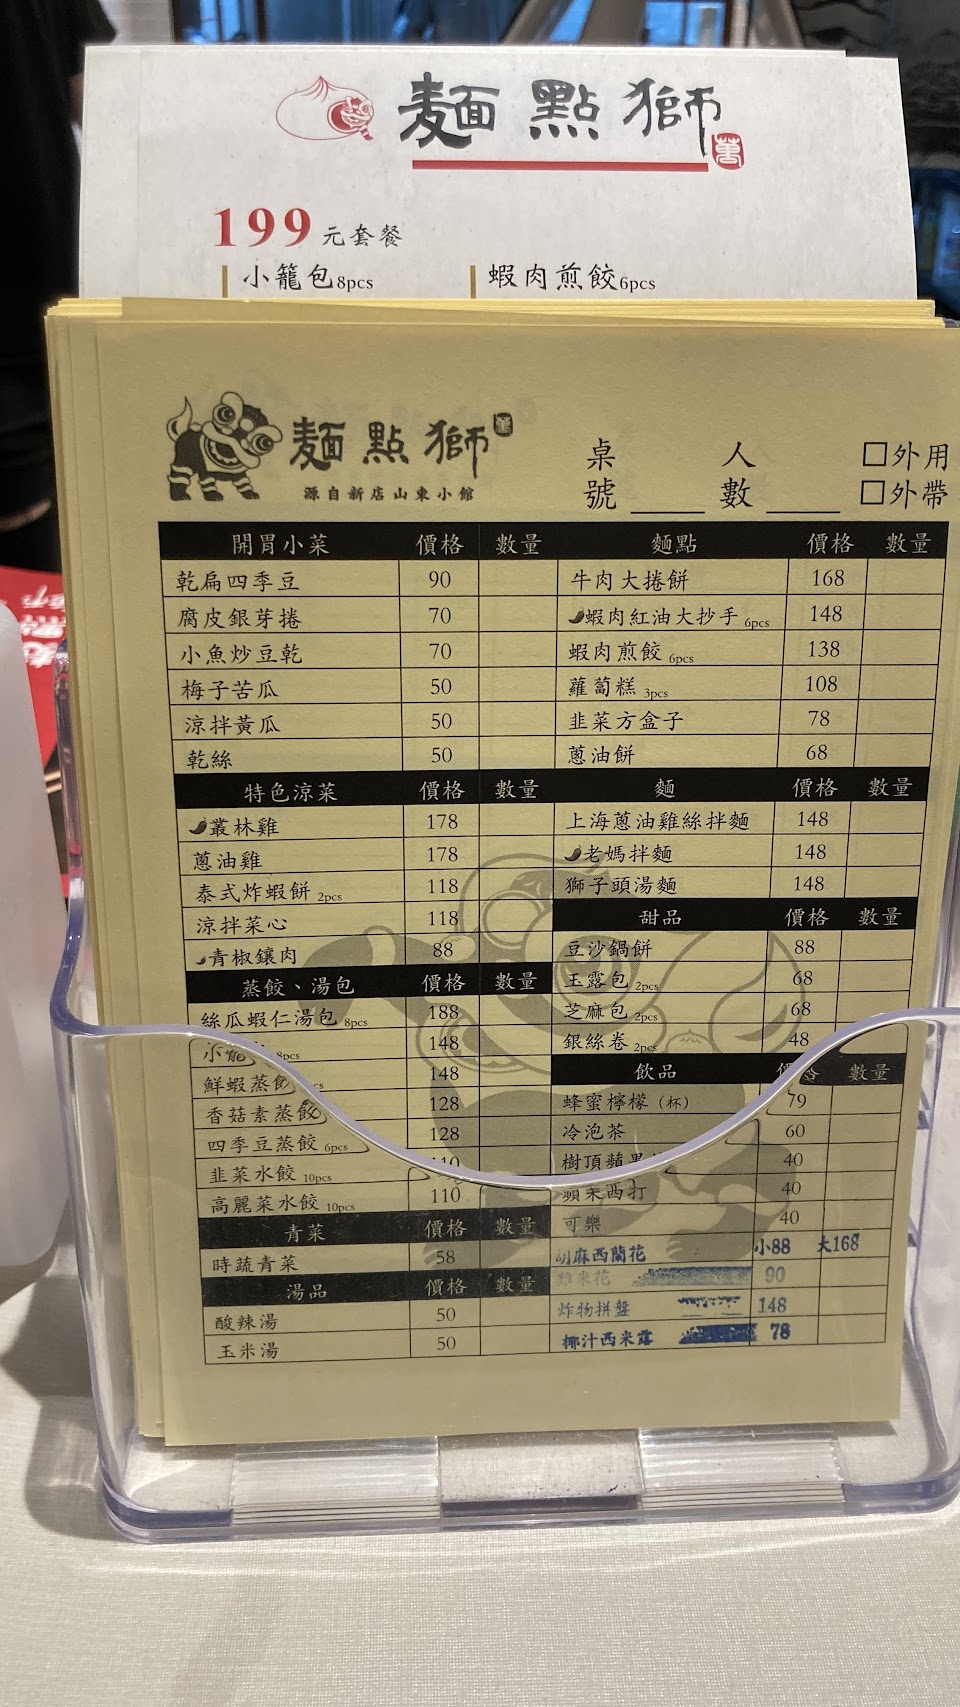 麵點獅
萬
199元套餐
小籠包8pcs 蝦肉煎餃6pcs
麵點獅
源自新店山東小館
桌號____ 人數____ □外用 □外帶
開胃小菜 價格 數量
乾扁四季豆 90
腐皮銀芽捲 70
小魚炒豆乾 70
梅子苦瓜 50
涼拌黃瓜 50
乾絲 50
特色涼菜 價格 數量
叢林雞 178
蔥油雞 178
泰式炸蝦餅 2pcs 118
涼拌菜心 118
青椒鑲肉 88
蒸餃、湯包 價格 數量
絲瓜蝦仁湯包 8pcs 188
小籠 8pcs 148
鮮蝦蒸餃 148
香菇素蒸餃 128
四季豆蒸餃 6pcs 128
韭菜水餃 10pcs 110
高麗菜水餃 10pcs 110
青菜 價格 數量
時蔬青菜 58
湯品 價格 數量
酸辣湯 50
玉米湯 50
麵點 價格 數量
牛肉大捲餅 168
蝦肉紅油大抄手 6pcs 148
蝦肉煎餃 6pcs 138
蘿蔔糕 3pcs 108
韭菜方盒子 78
蔥油餅 68
麵 價格 數量
上海蔥油雞絲拌麵 148
老媽拌麵 148
獅子頭湯麵 148
甜品 價格 數量
豆沙鍋餅 88
玉露包 2pcs 68
芝麻包 2pcs 68
銀絲卷 2pcs 48
飲品 價格 數量
蜂蜜檸檬（杯） 79
冷泡茶 60
樹頂蘋果 40
蘋果西打 40
可樂 40
胡麻西蘭花 小88 大168
雞米花 90
炸物拼盤 148
椰汁西米露 78